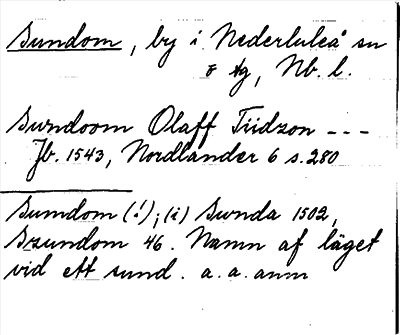 Sundom, by i Nederluleå sn
o tg, Nb. l.
Swndoom Olaff Tiidzon ---
Jb. 1543, Nordlander 6 s. 280
Sumdom (!); (i) Swnda 1502,
Szundom 46. Namn af läget
vid ett sund. a. a. anm